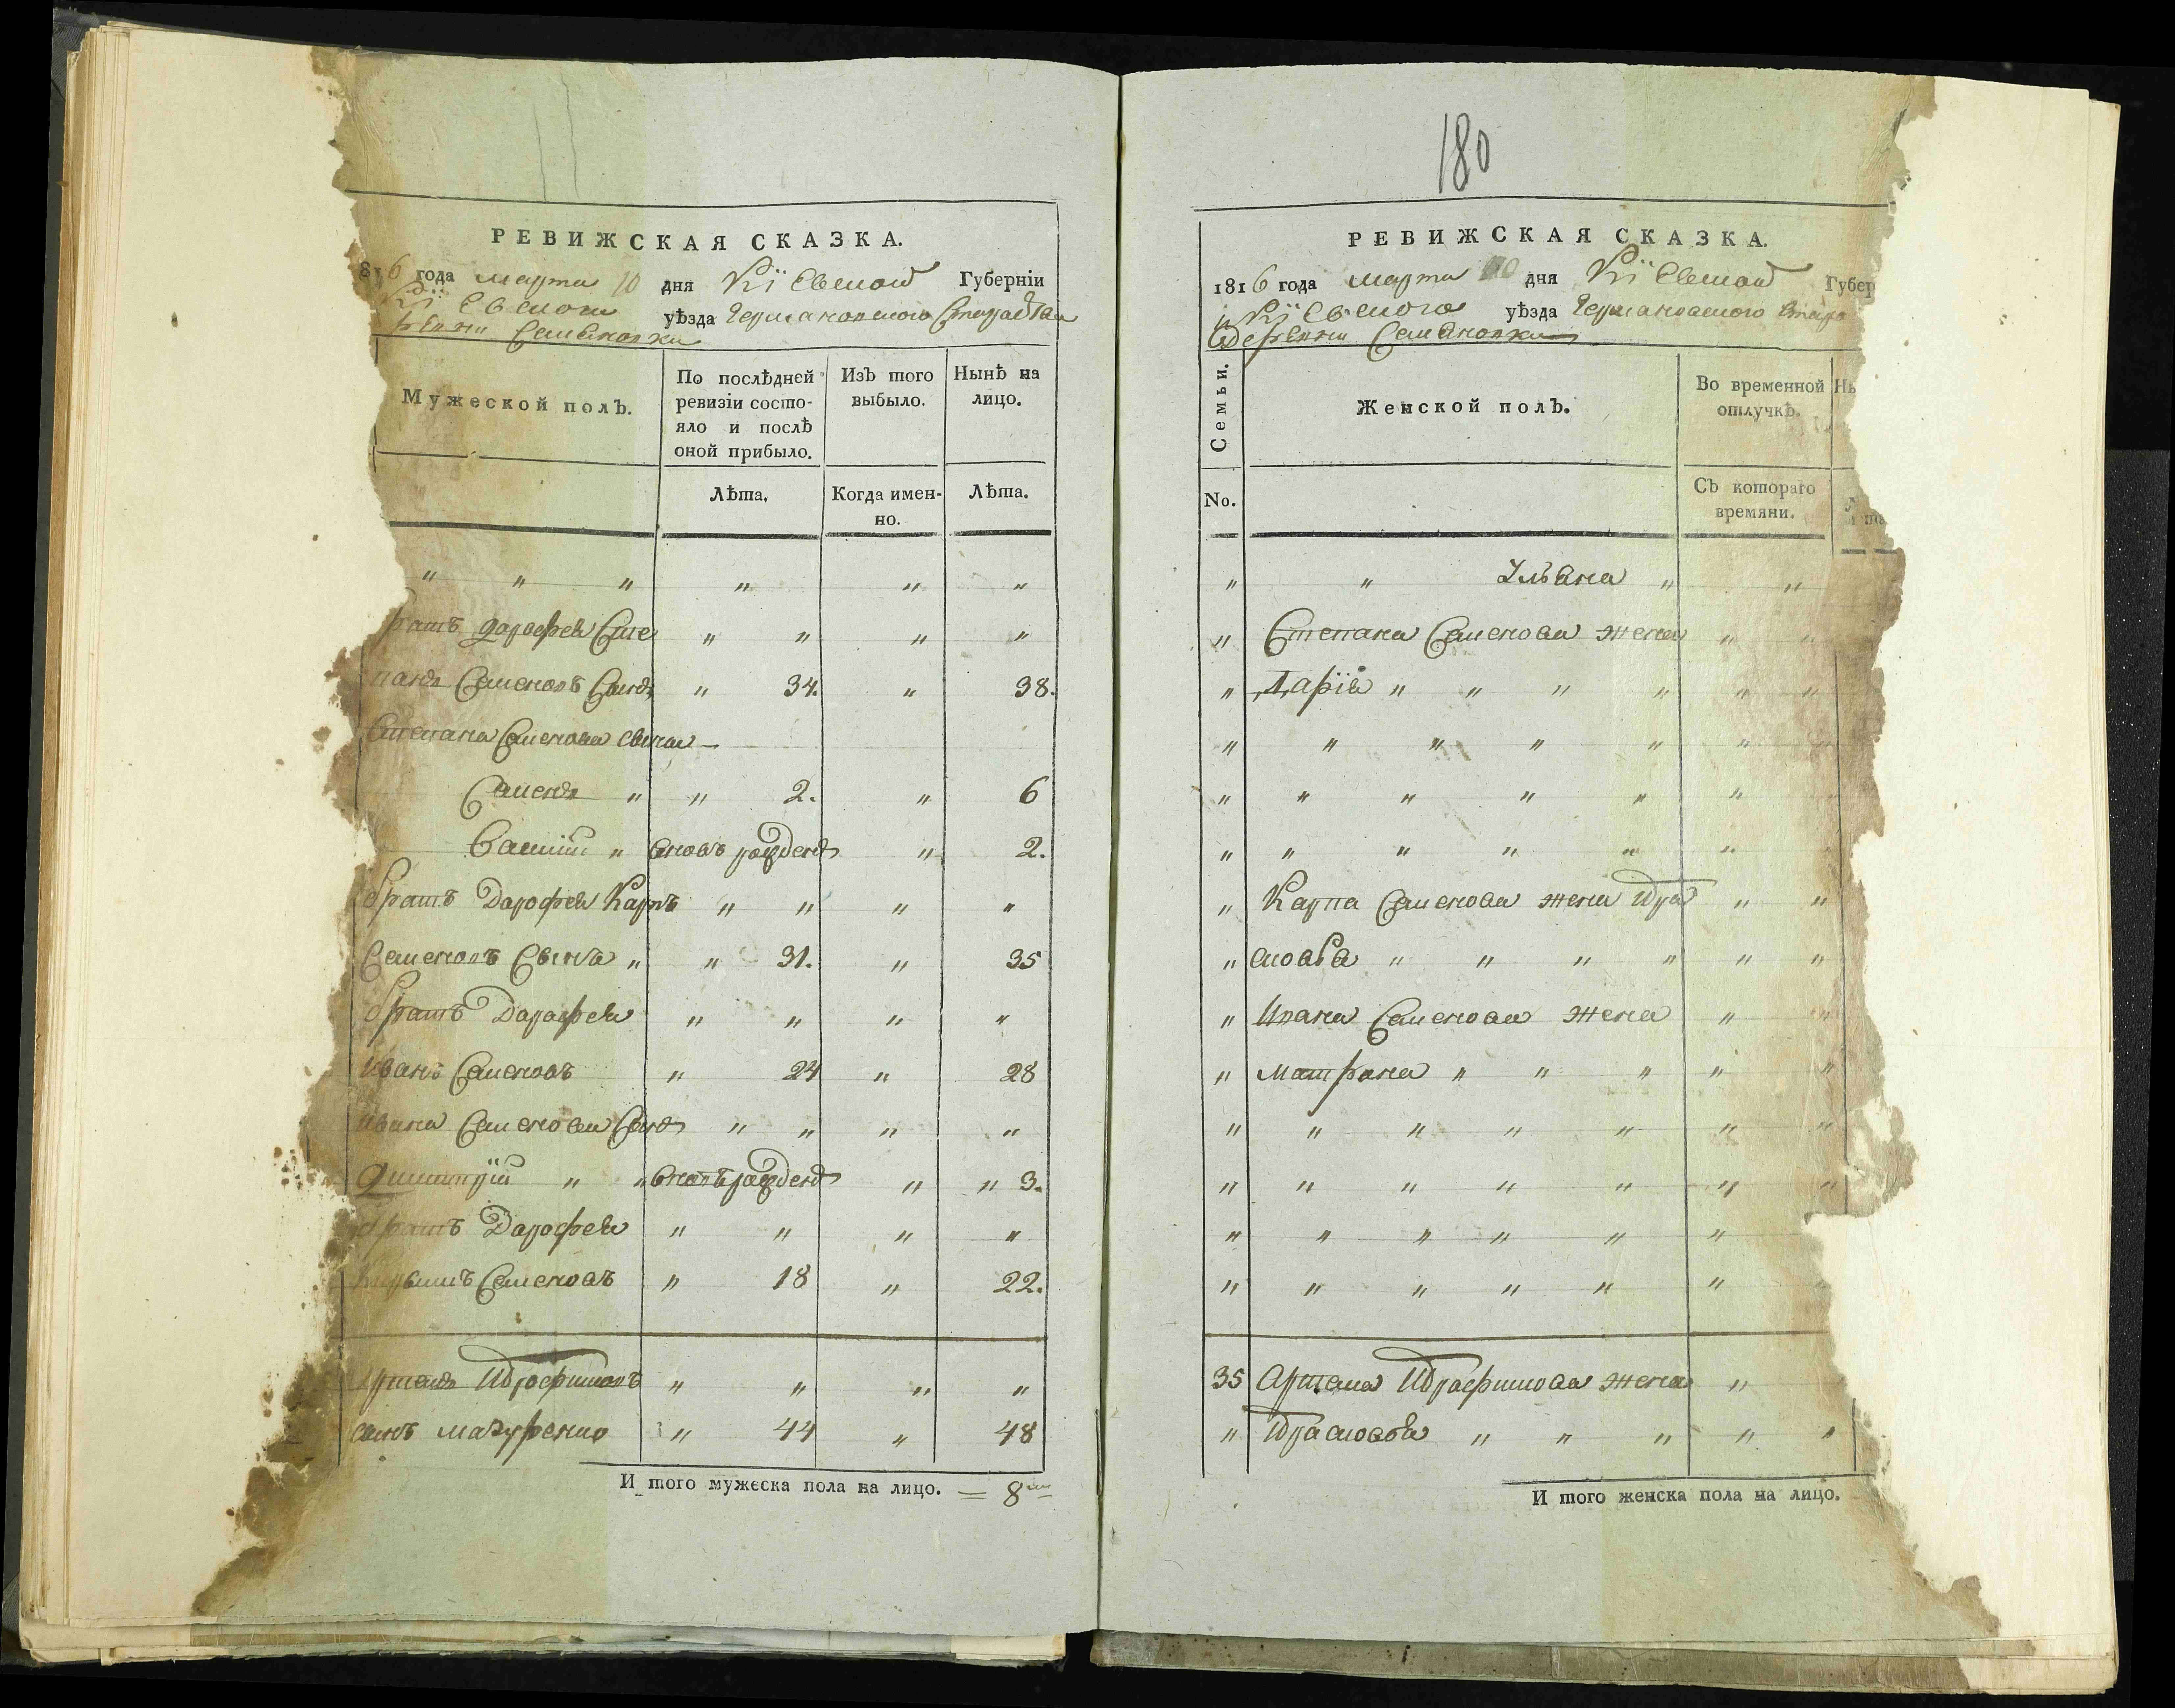 180
РЕВИЖСКАЯ СКАЗКА.
816 года марта 10 дня Кіевской Губерніи
Кіевского уѣзда Германовского Староства
ревни Семеновки
Мужеской полъ.
По послѣдней ревизіи состо-
яло и послѣ
оной прибыло.
Изъ того
выбыло.
Нынѣ на
лицо.
Лѣта.
Когда имен-
но.
Лѣта.
" " " " " "
братъ Дарофея Сте " " " "
панъ Семеновъ Сынъ " 34. " 38.
Степана Семенова сыны —
Семенъ " " 2. " 6
Василій " вновь рожденъ " 2.
братъ Дарофея Карпъ " " " "
Семеновъ Сынъ " " 31. " 35
братъ Дарофея " " " "
Иванъ Семеновъ " 24 " 28
Ивана Семенова Сынъ " " " "
Дмитрій " " вновь рожденъ " " 3.
братъ Дарофея " " " "
Семеновъ " 18 " 22.
Артемъ Ефимовъ " " " "
сынъ Мазуренко " 44 " 48
И того мужеска пола на лицо. = 8
РЕВИЖСКАЯ СКАЗКА.
1816 года марта 10 дня Кіевской Губер
Кіевского уѣзда Германовского Старо
деревни Семеновки
Семьи.
Женской полъ.
Во временной
отлучкѣ.
Ны
No.
Съ котораго
времяни.
" " Ульяна " "
" Степана Семенова жена " "
" Дарія " " " " " "
" " " " " " "
" " " " " " "
" " " " " " "
" Карпа Семенова жена Ефра " "
" " " " " " "
" Ивана Семенова жена " "
" Матрона " " " " "
" " " " " " "
" " " " " " "
" " " " " "
" " " " " "
35 Артема жена "
" " " " " "
И того женска пола на лицо.